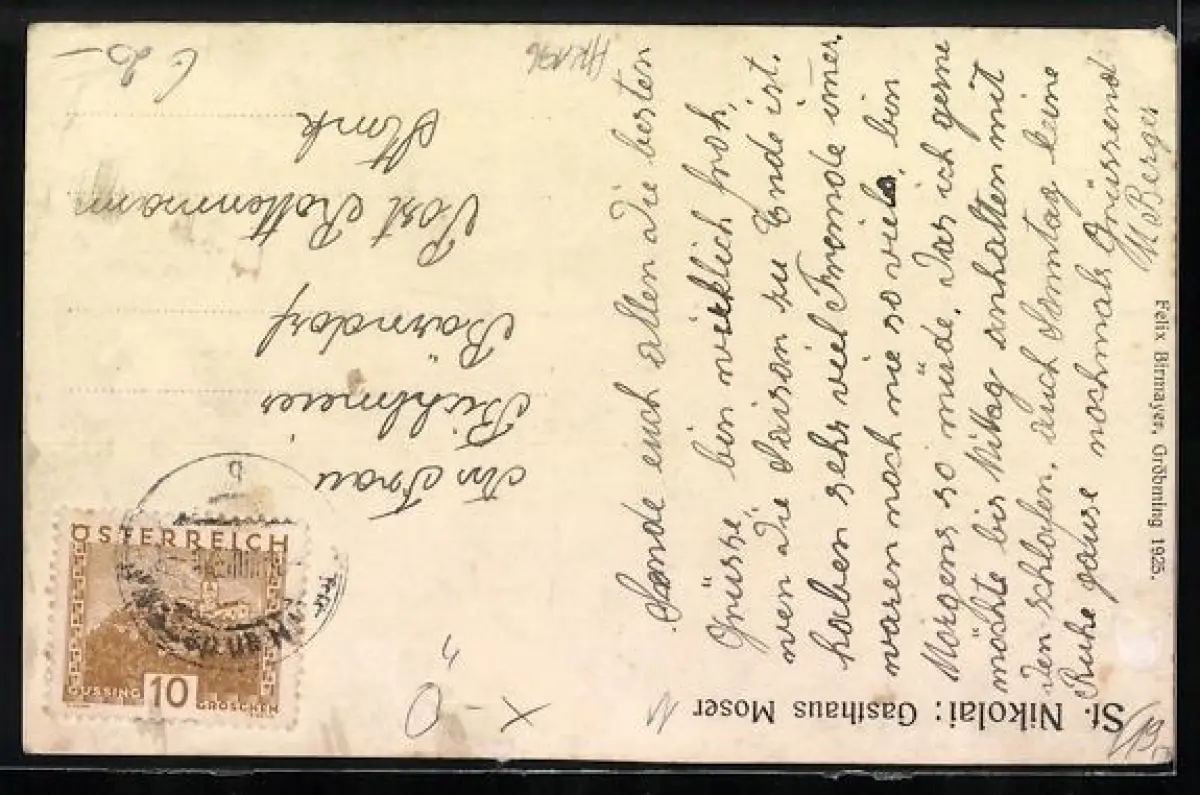 St. Nikolai: Gasthaus Moser
Sende euch allen die besten
Grüsse, bin wirklich froh,
wen die Saison zu Ende ist.
haben sehr viel Fremde imer.
waren noch nie so viele, bin
Morgens so müde, das ich gerne
möchte bis Mitag anhalten mit
den schlofen, auch Sonntag keine
Ruhe
nochmals Grüssend
M Berger
Felix Birmayer, Gröbming 1925.
An Frau
Bichlmeier
Bärndorf
Post Rottenmann
ÖSTERREICH
GÜSSING 10 GROSCHEN